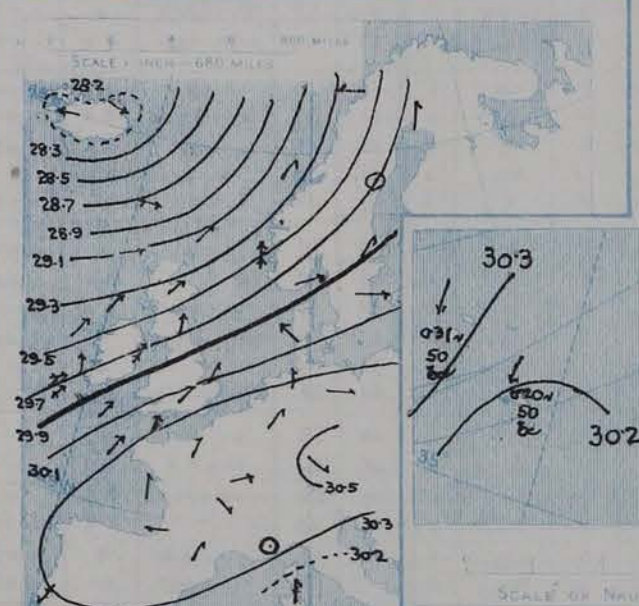 800 MILES
SCALE 1 INCH = 680 MILES
28.2
28.3
28.5
28.7
28.9
29.1
29.3
29.5
29.7
29.9
30.1
30.5
30.3
30.2
30.3
031
50
020
50
30.2
35
SCALE OF NAU